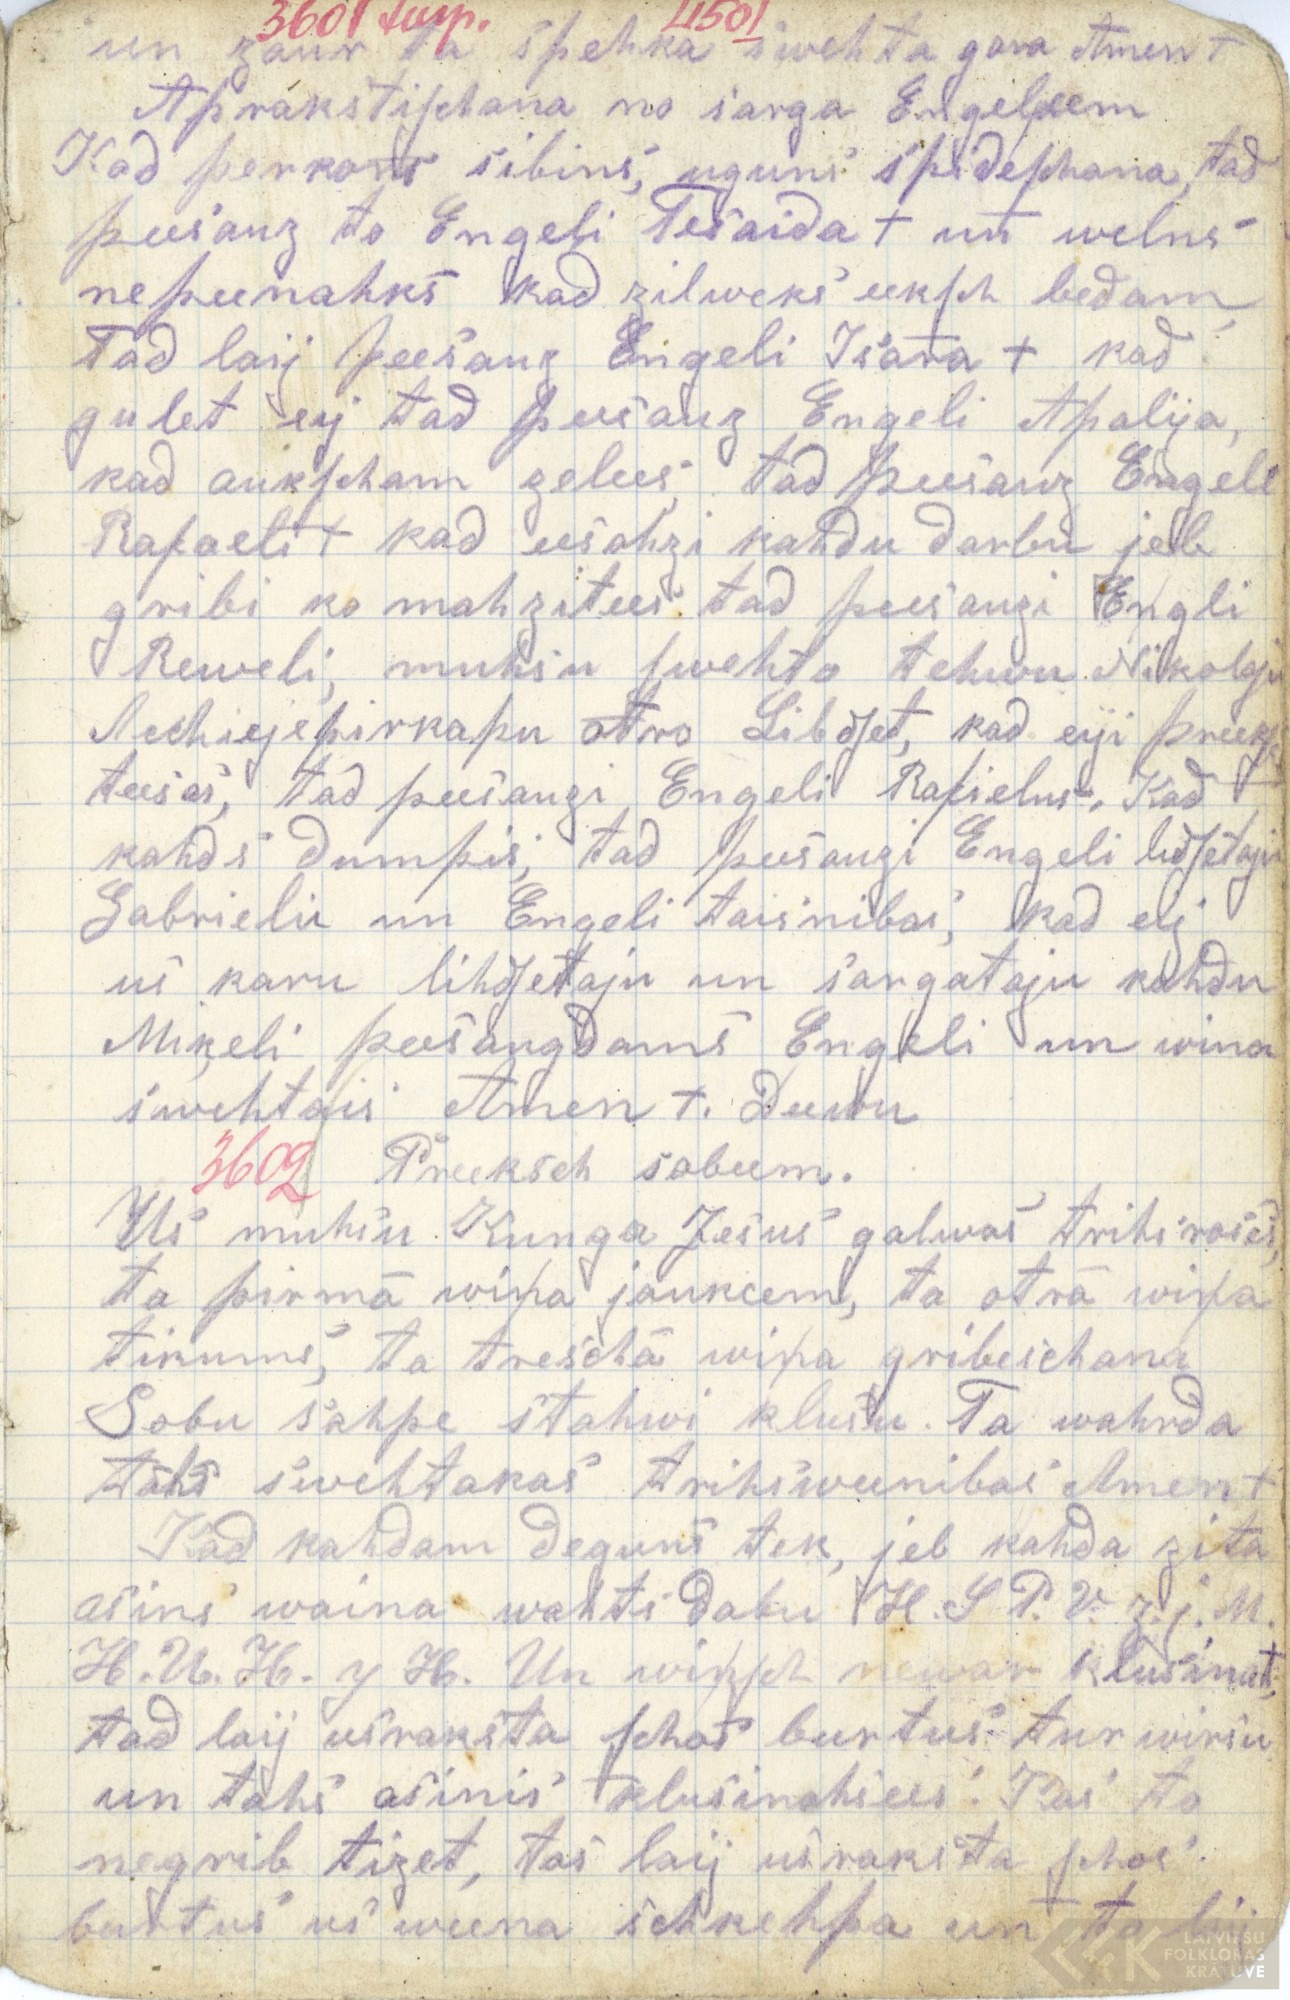 3601 turp. 4501
un zaur ta spehka swehta gara Amen +
Aprakstischana no sarga Engeleem
Kad perkons sibins, uguns spideschana, tad
peesauz to Engeli Tesaida + un welns
nepeenahks kad zilweks eeksch bedam,
Tad laij peesauz Engeli Isara + kad
gulet eij tad peesauz Engeli Apalija,
kad aukscham zelees, tad peesauz Engeli
Rafaeli + kad eesahzi kahdu darbu jeb
gribi ko mahzitees tad peesauzi Engli
Reweli, muhsu swehto tehwu Nikolaju
otro Libdset, kad eiji preeksch
teesas, tad peesauzi Engeli Rafielus. Kad
kahds dumpis, tad peesauzi Engeli lidsetaju
Gabrielu un Engeli taisnibas, kad eij
us karu lihdsetaju un sargataju kahdu
Mikeli peesaugdams Engeli un wina
swehtais Amen +. Deewu
3602 Preeksch sobeem.
Us muhsu Kunga Jesus galwas trihs roses,
ta pirmā wiņa jaukeem, ta otrā wiņa
tikums, ta treschā wiņa gribeschana
Sobu sahpe stahwi klusu. Ta wahrda
tahs swehtakas trihsweenibas Amen +
Kad kahdam deguns tek, jeb kahda zita
asins waina wahts dabu H. S. P. V. z. j. M.
H. U. H. y H. Un wiņsch newar klusinat,
tad laij usraksta schos burtus tur wirsu
un tahs asinis klusinahsees. Kas to
negrib tizet, tas laij usraksta schos
burtus us weena schkehpa un to laij
LATVIEŠU
FOLKLORAS
KRĀTUVE